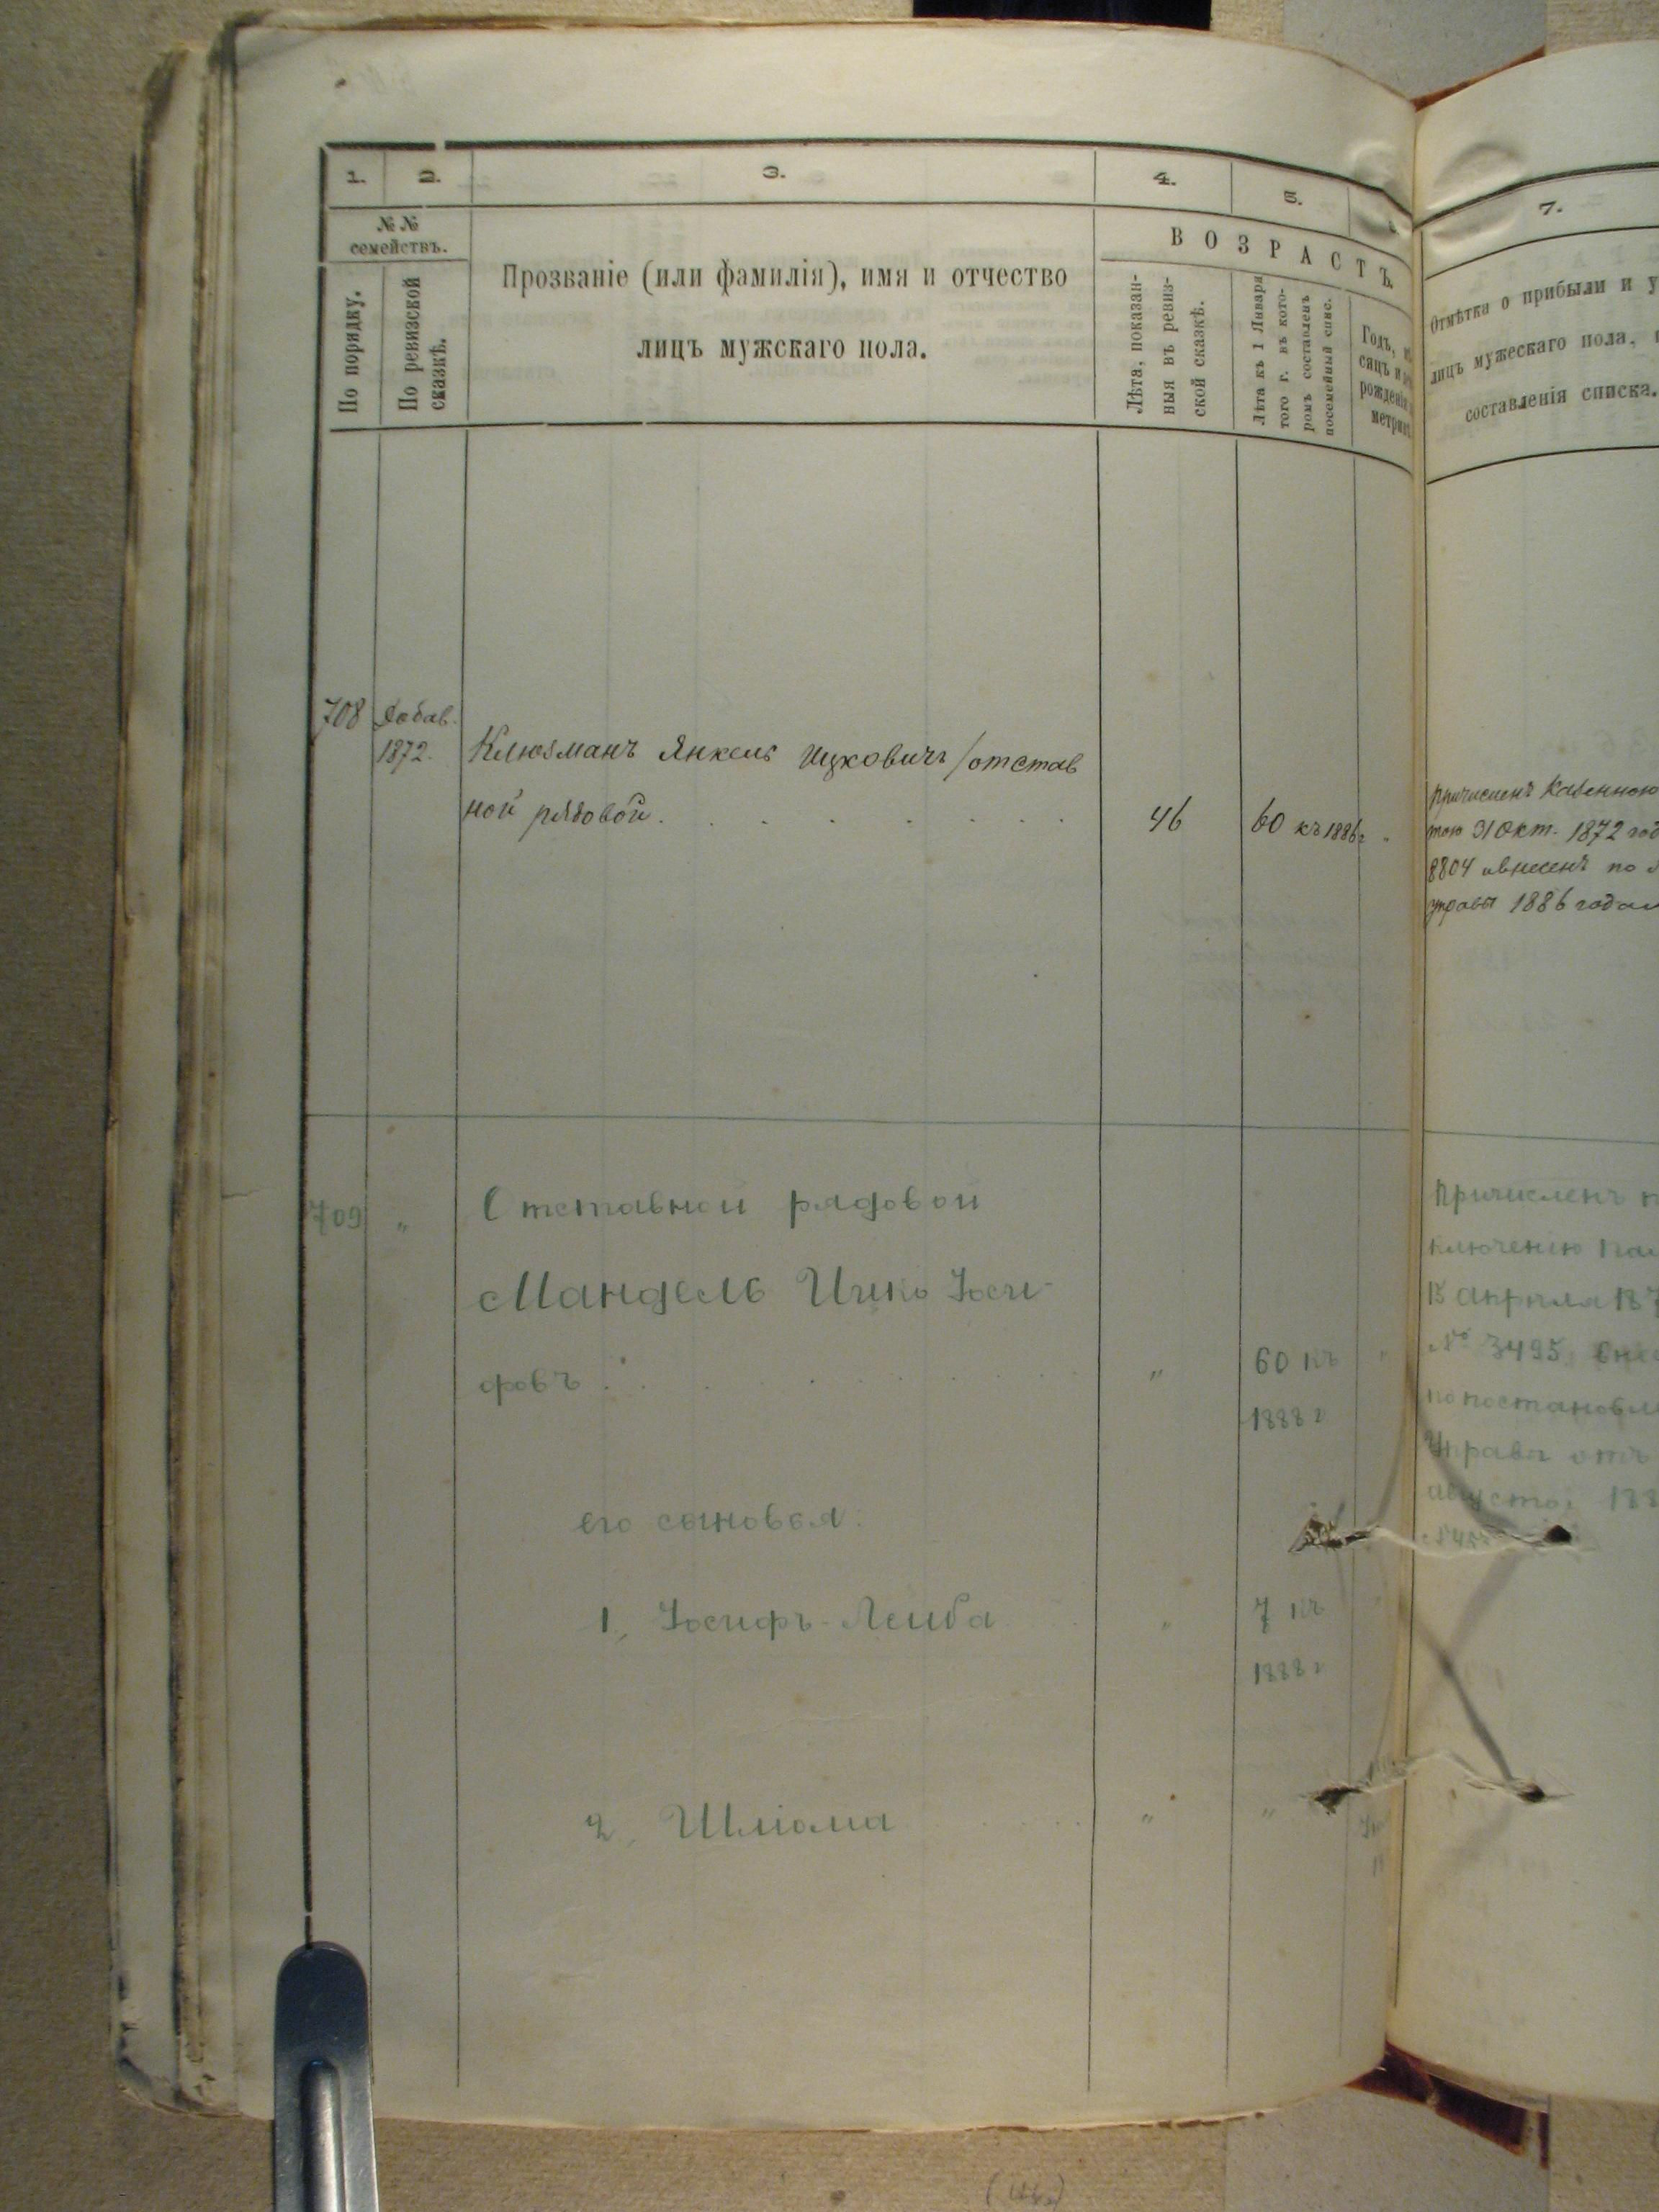 1. 2. 3. 4. 5. 7.
№ № семействъ.
По порядку.
По ревизской сказкѣ.
Прозваніе (или фамилія), имя и отчество
лицъ мужскаго пола.
ВОЗРАСТЪ.
Лѣта, показан-
ныя въ ревиз-
ской сказкѣ.
Лѣта къ 1 Января
того г. въ кото-
ромъ составленъ
посемейный спис.
Годъ, мѣ
сяцъ и
рожденія
метрик
Отмѣтка о прибыли и у
лицъ мужескаго пола,
составленія списка.
708 Добав.
1872. Клюзманъ Янкель Ицковичъ /отстав
ной рядовой. 46 60 къ 1886 г.
причисленъ Казенною
тою 31 Окт. 1872 год
8804 и внесенъ по
управы 1886 года
709 " Отставной рядовой
Мандель Ицко Іоси-
фовъ " 60 къ
1888 г
Причисленъ п
ключенію Пал
15 апрѣля 187
№ 3495.
по постановл
Управы отъ
августа 188
его сыновья:
1, Іосифъ-Лейба " 7 къ
1888 г
2, Шліома " "